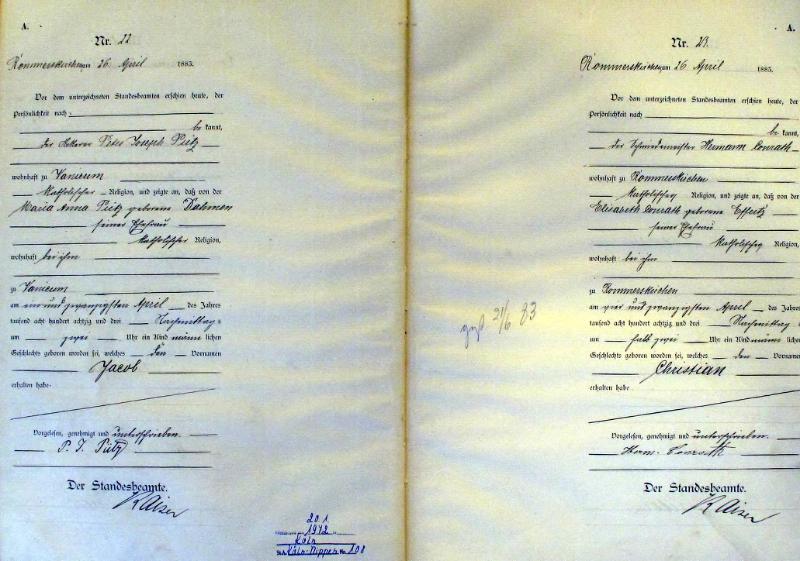 A.
Nr. 22
Rommerskirchen am 26 April 1883.
Vor dem unterzeichneten Standesbeamten erschien heute, der
Persönlichkeit nach
be kannt,
der Peter Joseph Pütz
wohnhaft zu Vanicum
katholischer Religion, und zeigte an, daß von der
Maria Anna Pütz geborene Dahmen
seiner Ehefrau
katholischer Religion,
wohnhaft bei ihm
zu Vanicum
am ein und zwanzigsten April des Jahres
tausend acht hundert achtzig und drei Nachmittag
um zwei Uhr ein Kind männ lichen
Geschlechts geboren worden sei, welches den Vornamen
Jacob
erhalten habe
Vorgelesen, genehmigt und unterschrieben.
P. J. Pütz
Der Standesbeamte.
Kaiser
20 1
1942
Köln
Köln-Nippes Nr. 108
A.
Nr. 23.
Rommerskirchen am 26 April 1883.
Vor dem unterzeichneten Standesbeamten erschien heute, der
Persönlichkeit nach
be kannt,
der Schmiedemeister Hermann Conrath
wohnhaft zu Rommerskirchen
katholischer Religion, und zeigte an, daß von der
Elisabeth Conrath geborene Effertz
seiner Ehefrau
katholischer Religion,
wohnhaft bei ihm
zu Rommerskirchen
am vier und zwanzigsten April des Jahres
tausend acht hundert achtzig und drei Nachmittags
um halb zwei Uhr ein Kind männ lichen
Geschlechts geboren worden sei, welches den Vornamen
Christian
erhalten habe
Vorgelesen, genehmigt und unterschrieben.
Herm. Conrath
Der Standesbeamte.
Kaiser
21/6 83